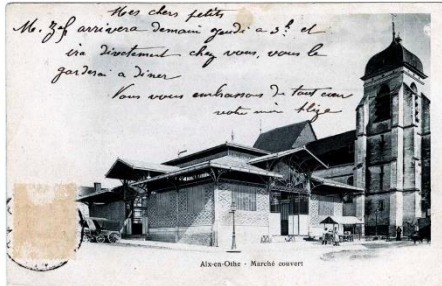 Mes chers petits
M. Zef arrivera demain jeudi a 3h et
ira directement chez vous, vous le
garderai a diner
Vous vous embrassons de tout cœur
votre
Aix-en-Othe - Marché couvert